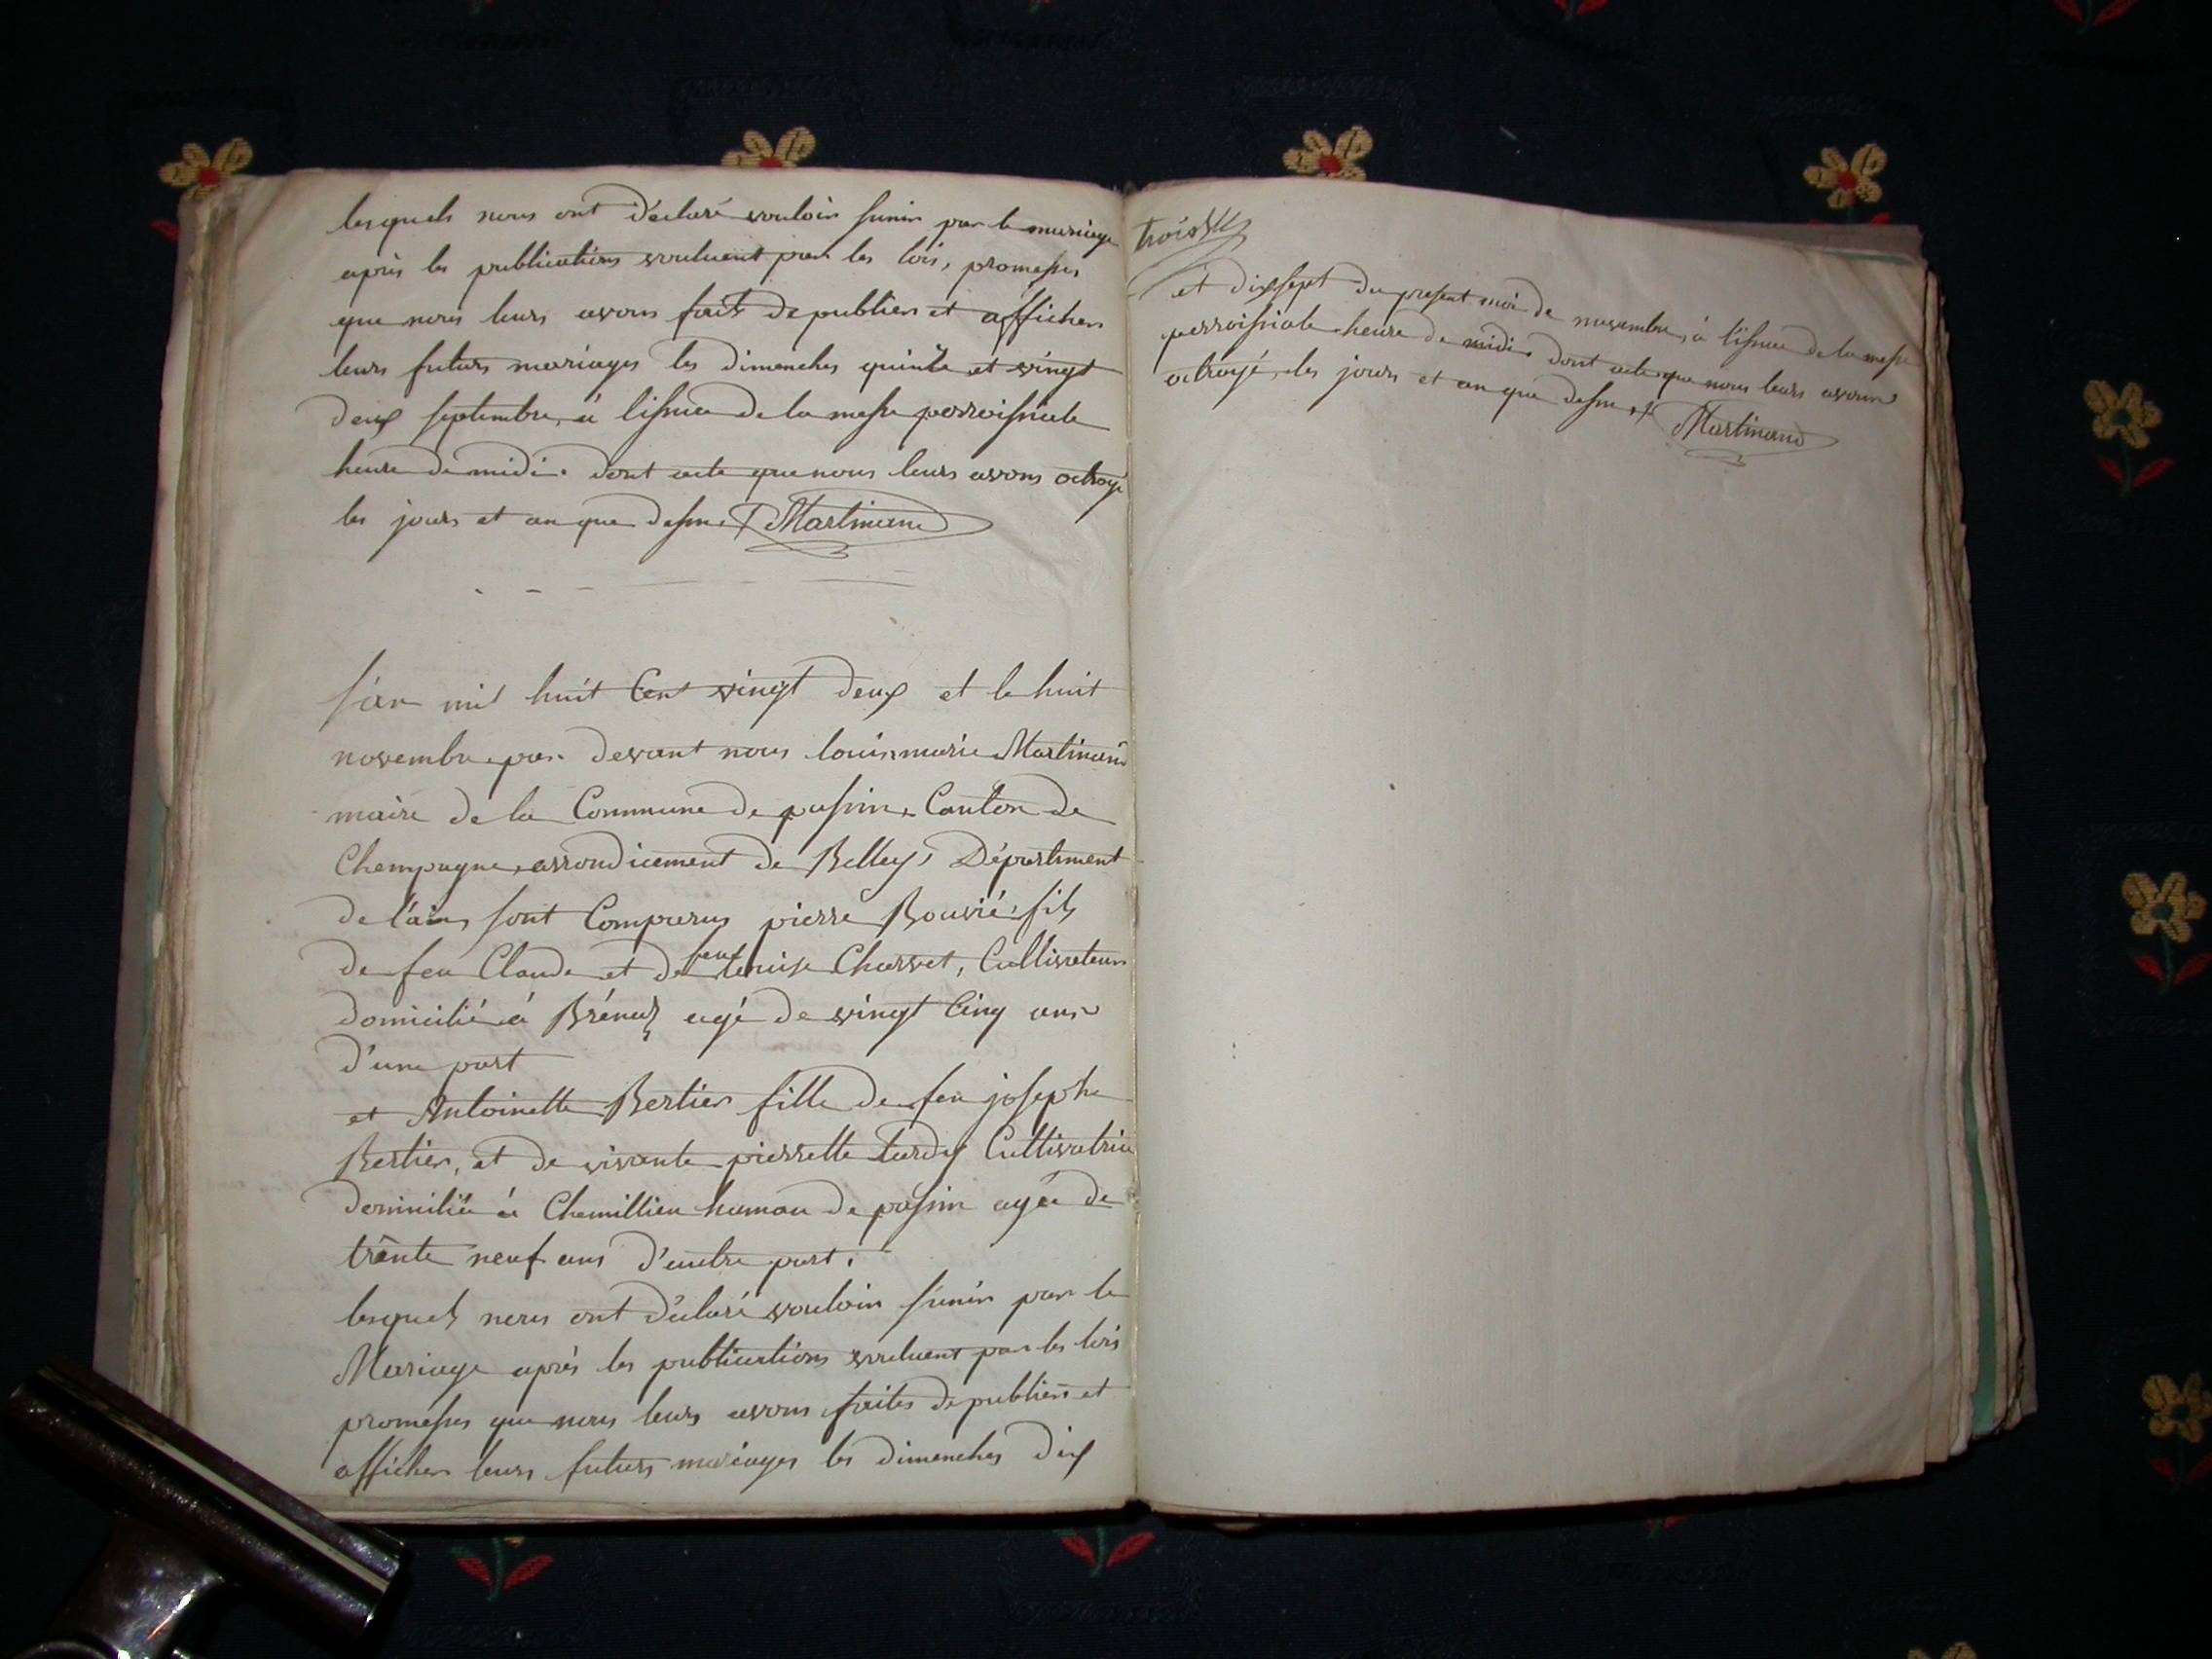 lesquels nous ont déclaré vouloir s'unir par le mariage
après les publications vouluent par les lois, promesses
que nous leurs avons fait de publier et afficher
leurs futurs mariages les dimanches quinze et vingt
deux septembre, à l'issue de la messe perroissiale
heure de midi. dont acte que nous leurs avons octroyé
les jours et an que dessus Martinand
L'an mil huit Cent vingt deux et le huit
novembre par devant nous louis marie Martinand
maire de la Commune de passin, Canton de
Champagne, arrondicement de Belley, Département
de l'ain, sont Comparus pierre Bouvié, fils
de feu Claude et de feue Louise Charvet, Cultivateur
domicilié à Brénaz agé de vingt Cinq ans
d'une part
et Antoinette Bertier fille de feu josephe
Bertier, et de vivante pierrette tardy Cultivatrice
domiciliée à Chemillieu hamau de passin agée de
trente neuf ans d'autre part.
lesquels nous ont déclaré vouloir s'unir par le
Mariage après les publications vouluent par les lois
promesses que nous leurs avons faites de publier et
afficher leurs futurs mariages les dimanches dix
trois
et dix sept du present moi de novembre, à l'issue de la messe
perroissiale heure de midi. dont acte que nous leurs avons
octroyé, les jours et an que dessus Martinand